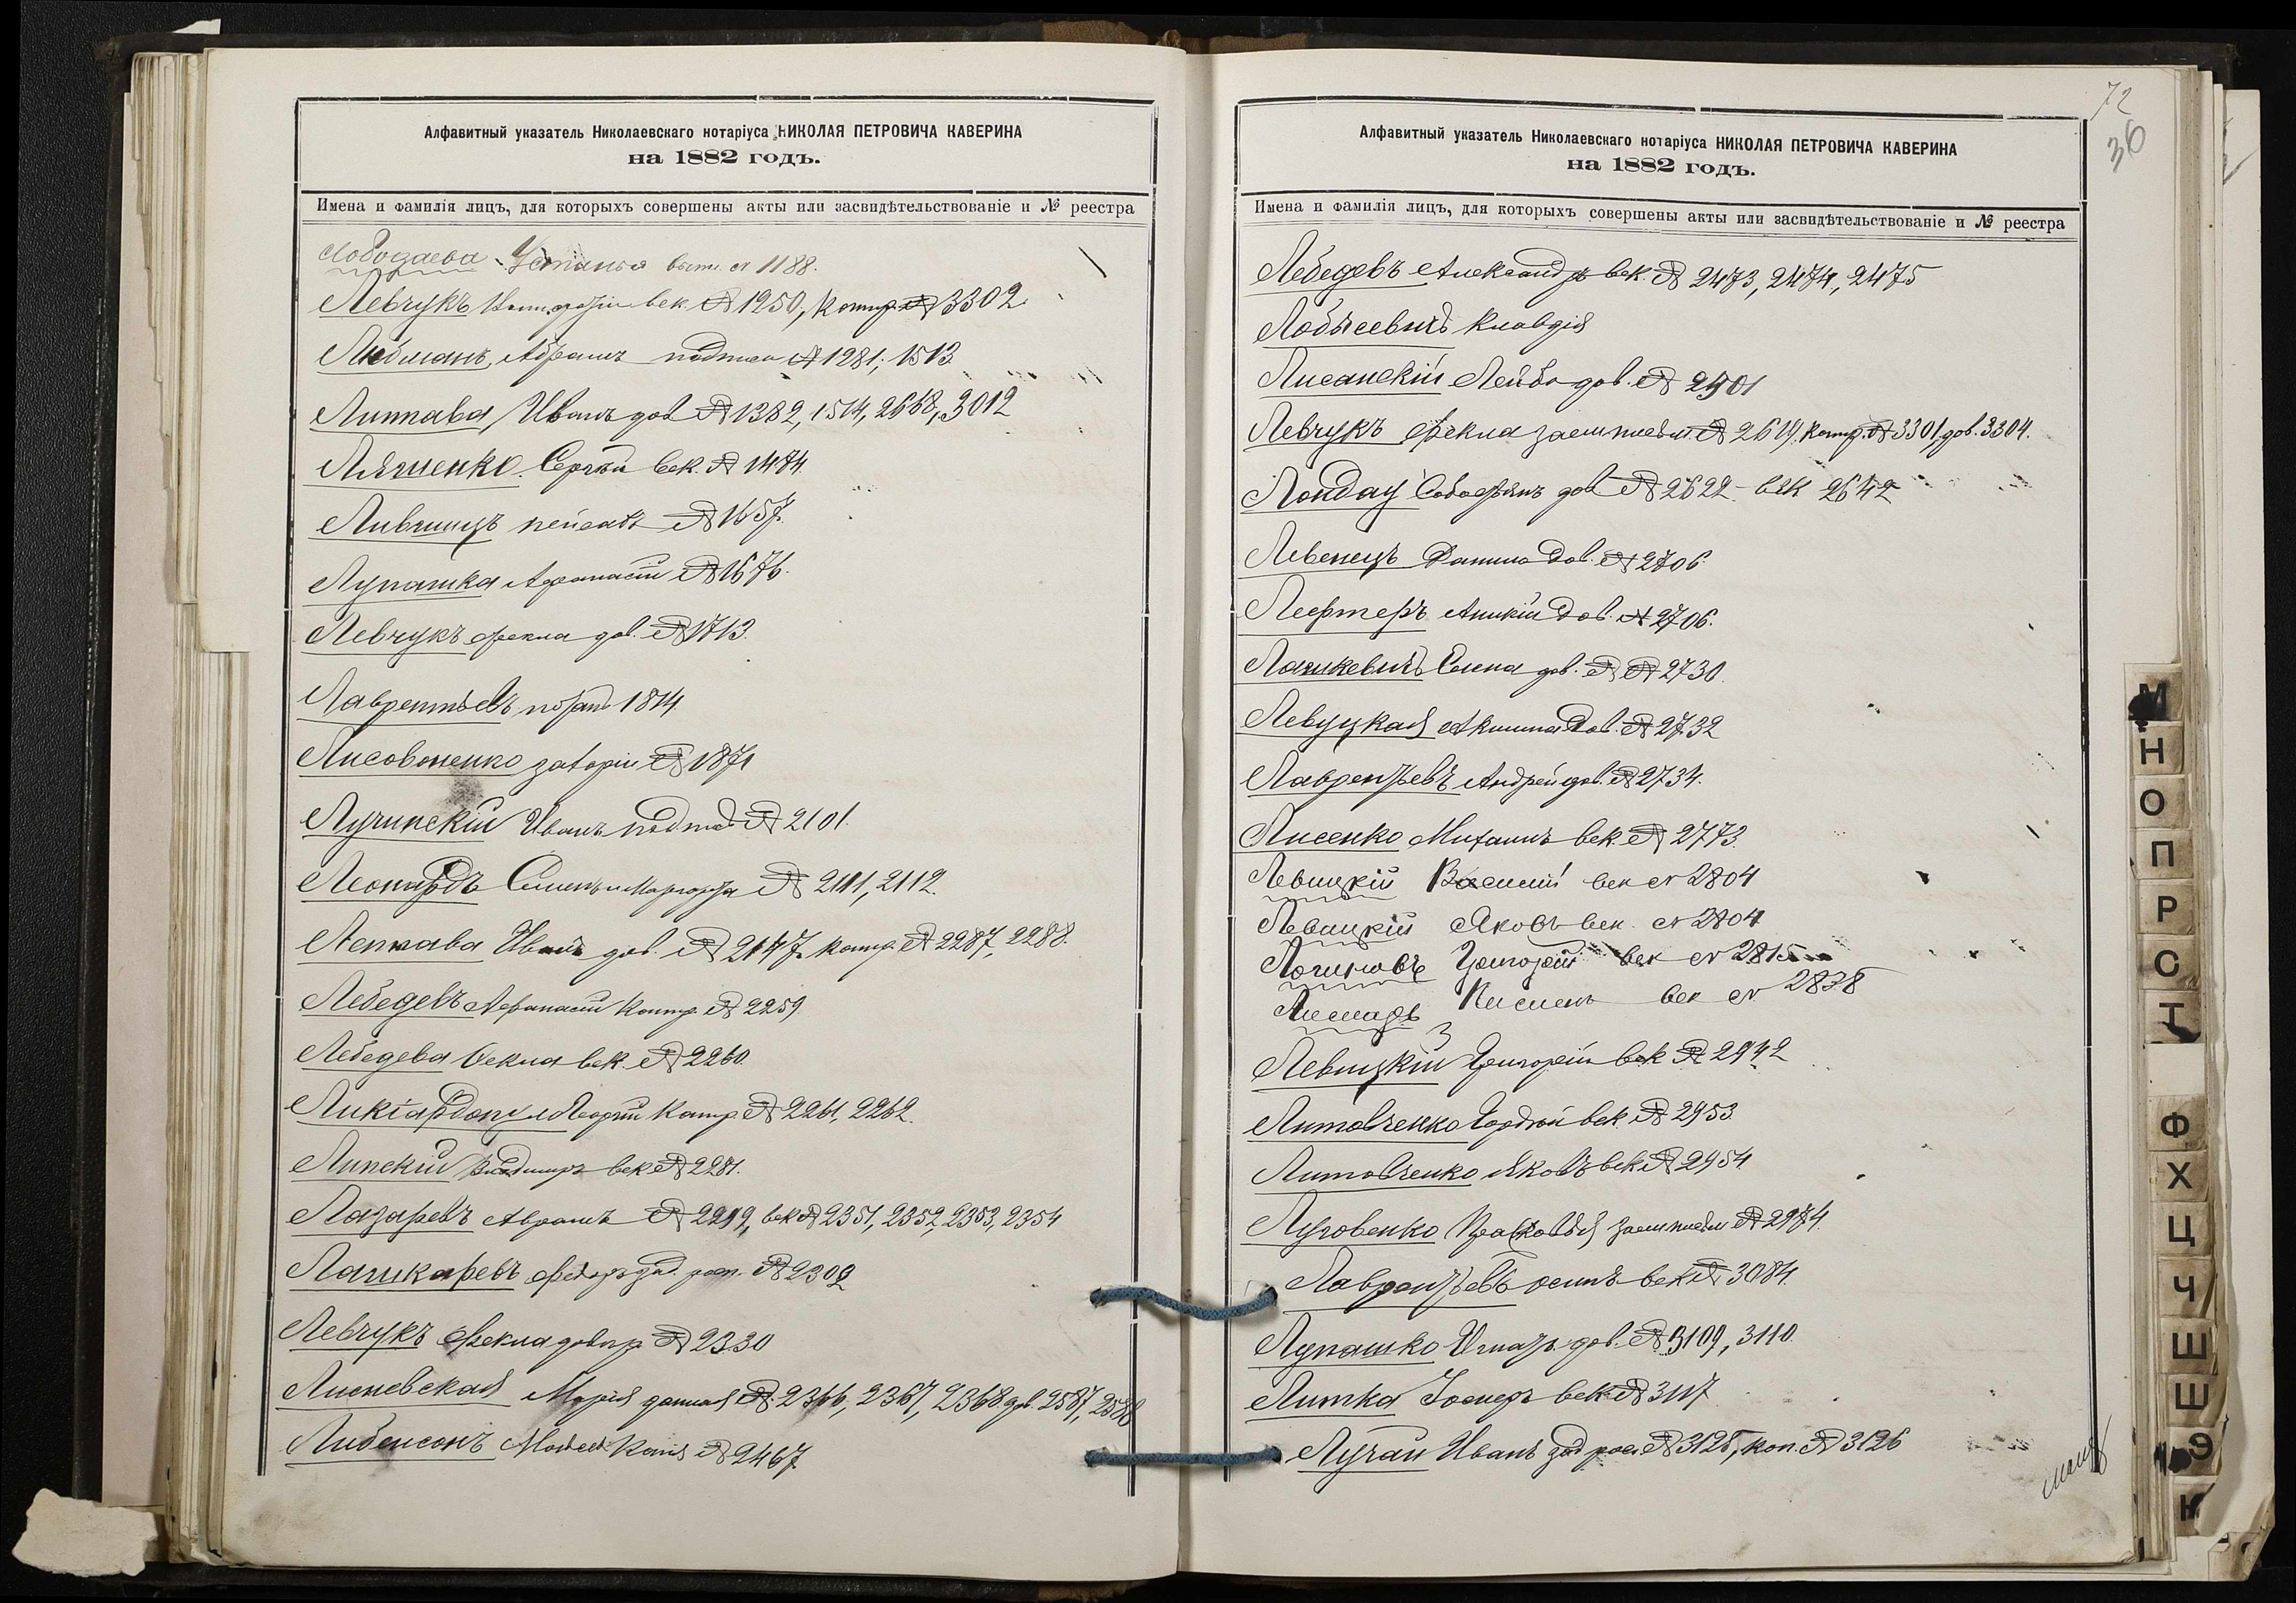 Алфавитный указатель Николаевскаго нотаріуса НИКОЛАЯ ПЕТРОВИЧА КАВЕРИНА
на 1882 годъ.
Имена и фамилія лицъ, для которыхъ совершены акты или засвидѣтельствованіе и № реестра
Лободаева Устинья № 1188.
Левчукъ век. № 1250, контр. № 3302
Либманъ Абрамъ № 1281, 1513
Литтава Иванъ дов № 1382, 1514, 2668, 3012
Ляшенко Сергѣй век. № 1484.
Лившицъ Пейсахъ № 1657.
Лупашка Афанасій № 1676.
Левчукъ Фекла дов. № 1713.
Лаврентьевъ 1814
Лисовоненко № 1871
Лучинскій Иванъ № 2101.
Леонардъ № 2111, 2112.
Леппава Иванъ дов. № 2147, контр. № 2287, 2288.
Лебедевъ Афанасій контр. № 2259.
Лебедева Фекла век. № 2260.
Ликіардопуло Георгій контр. № 2261, 2262.
Липскій Владимиръ век № 2281.
Лазаревъ Аврамъ № 2299, век № 2351, 2352, 2353, 2354
Лашкаревъ Федоръ зад. росп. № 2302
Левчукъ Фекла довѣр. № 2330
Лисневская Марія данная № 2366, 2367, 2368 дов. 2587, 2588
Либенсонъ копія № 2467
72
36
Алфавитный указатель Николаевскаго нотаріуса НИКОЛАЯ ПЕТРОВИЧА КАВЕРИНА
на 1882 годъ.
Имена и фамилія лицъ, для которыхъ совершены акты или засвидѣтельствованіе и № реестра
Лебедевъ Александръ век. № 2473, 2474, 2475
Лобысевичъ Клавдія
Лисанскій Лейба дов. № 2901
Левчукъ Фекла № 2619, контр. № 3301, дов. 3304.
Лондау дов № 2622 - век 2642
Левенецъ Данило дов. № 2706.
Лефтеръ Аникій дов. № 2706.
Лашкевичъ Елена дов. № № 2730.
Левуцкая дов. № 2732
Лаврентьевъ Андрей дов. № 2734.
Лисенко Михаилъ век. № 2773.
Левицкій Василій век № 2804
Левицкій Яковъ век. № 2804
Логиновъ Григорій век № 2815
век № 2838
Левицкій Григорій век № 2942
Литовченко Гордѣй век. № 2953.
Литовченко Яковъ век № 2954
Луговенко Прасковья № 2984.
Лаврентьевъ Осипъ век № 3084.
Лупашко дов. № 3109, 3110.
Литка век № 3117
Лучай Иванъ зад росп № 3125, коп. № 3126
М
Н
О
П
Р
С
Т
Ф
Х
Ц
Ч
Ш
Ш
Э